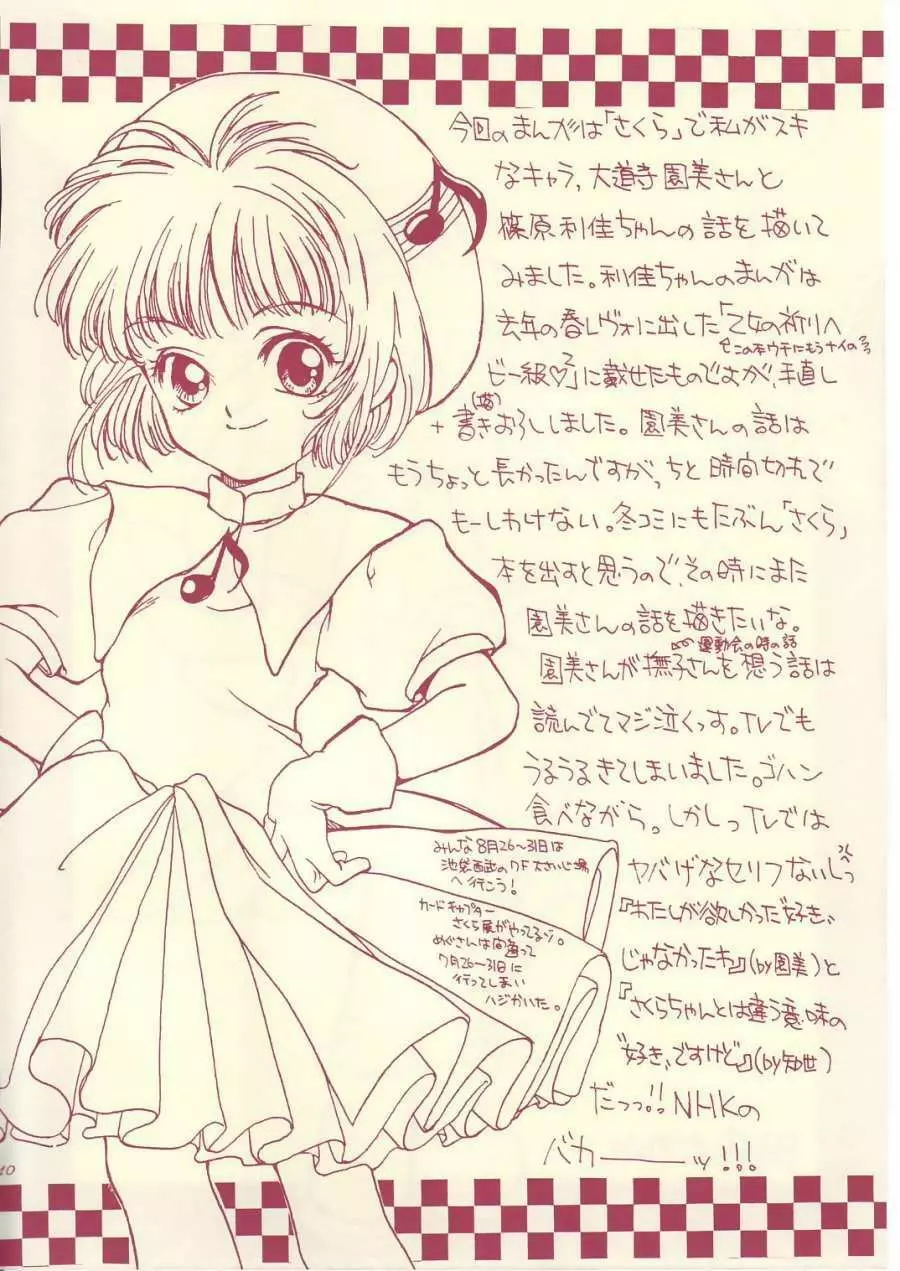 今回のまんがは「さくら」で私がスキ
なキャラ、大道寺園美さんと
篠原利佳ちゃんの話を描いて
みました。利佳ちゃんのまんがは
去年の春レヴォに出した「乙女の祈りへ
この本ウチにもうナイの
ビー級♡」に載せたものですが、手直し
(描)
+書きおろししました。園美さんの話は
もうちょっと長かったんですが、ちと時間切れで
もーしわけない。冬コミにもたぶん「さくら」
本を出すと思うので、その時にまた
園美さんの話を描きたいな。
運動会の時の話
園美さんが撫子さんを想う話は
読んでてマジ泣くっす。TVでも
うるうるきてしまいました。ゴハン
食べながら。しかしっTVでは
ヤバげなセリフないしっ
『わたしが欲しかった〝好き〟
じゃなかったわ』(by園美)と
『さくらちゃんとは違う意味の
〝好き〟ですけど』(by知世)
だっっ!!NHKの
バカーーーッ!!!
みんな8月26〜31日は
池袋西武の7F大さいじ場
へ行こう!
カードキャプター
さくら展がやってるゾ。
めぐさんは間違って
7月26〜31日に
行ってしまい
ハジかいた。
40